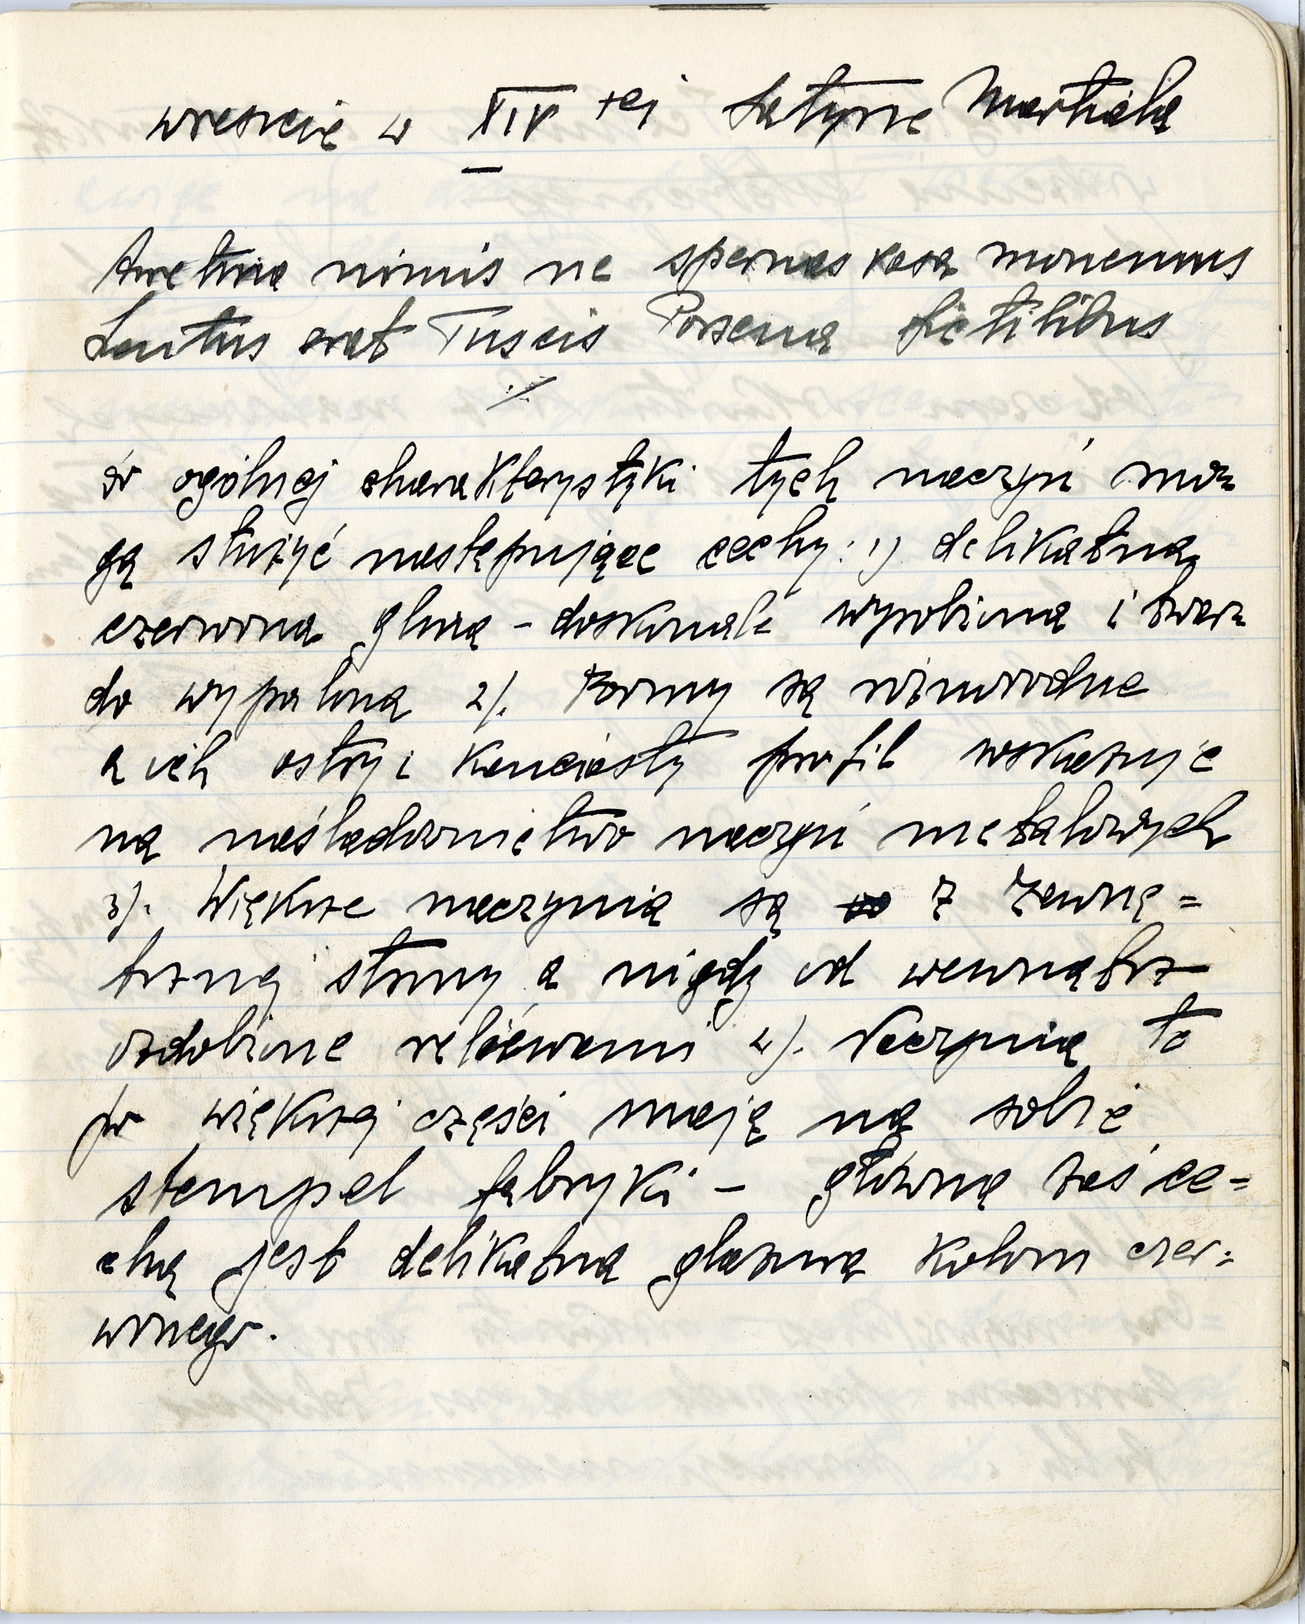 wreszcie w XIV tej Satyrze Martiala
Aretina nimis ne spernas vasa monemus
Lautus erat Tuscis Porsena fictilibus
./.
do ogólnej charakterystyki tych naczyń mo=
gą służyć następujące cechy: 1) delikatna,
czerwona glina – doskonale wyrobiona i twar=
do wypalona 2). Formy są różnorodne
a ich ostry i kanciasty profil wskazuje
na naśladownictwo naczyń metalowych
3). Większe naczynia są z zewnę=
trznej strony a nigdy od wewnątrz
ozdobione reliefami 4). Naczynia te
po większej części mają na sobie
stempel fabryki – główną zaś ce=
chą jest delikatna glazura koloru czer=
wonego.